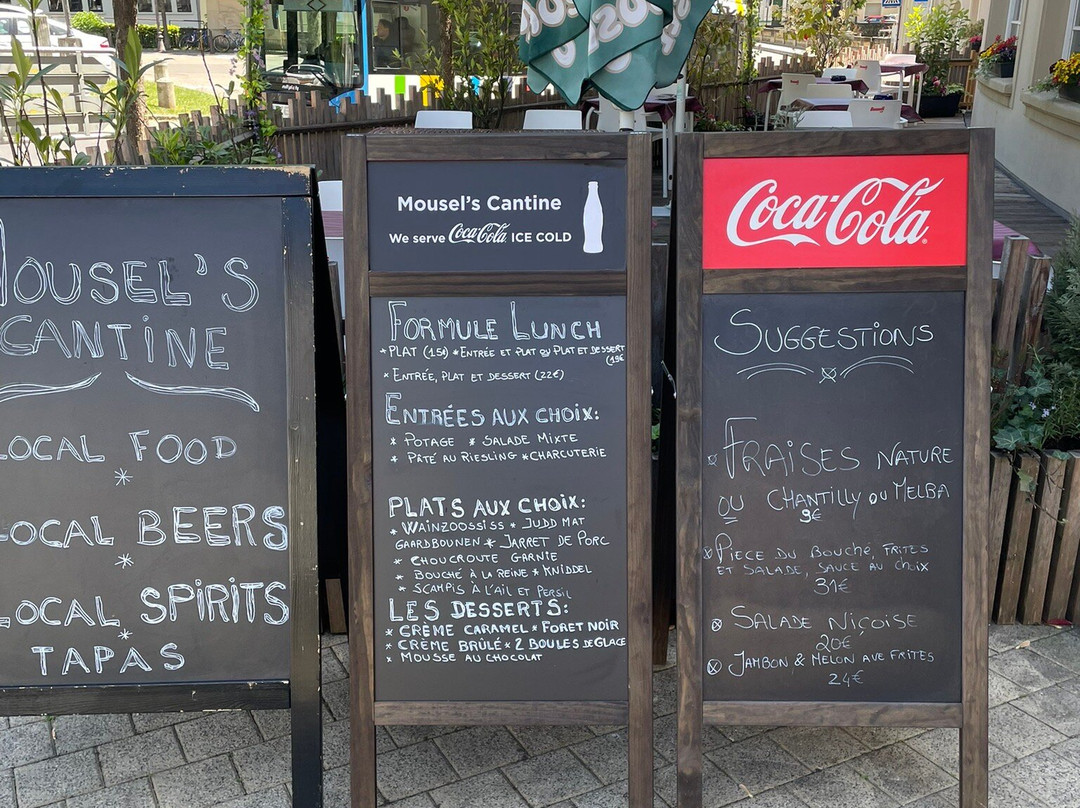 MOUSEL'S
CANTINE
LOCAL FOOD
*
LOCAL BEERS
*
LOCAL SPIRITS
*
TAPAS
Mousel's Cantine
We serve Coca-Cola ICE COLD
FORMULE LUNCH
* PLAT (15€) * ENTRÉE ET PLAT OU PLAT ET DESSERT
(19€
* ENTRÉE, PLAT ET DESSERT (22€)
ENTRÉES AUX CHOIX:
* POTAGE * SALADE MIXTE
* PÂTÉ AU RIESLING * CHARCUTERIE
PLATS AUX CHOIX:
* WAINZOOSSISS * JUDD MAT
GAARDBOUNEN * JARRET DE PORC
* CHOUCROUTE GARNIE
* BOUCHÉ À LA REINE * KNIDDEL
* SCAMPIS À L'AIL ET PERSIL
LES DESSERTS:
* CRÈME CARAMEL * FORET NOIR
* CRÈME BRÛLÉ * 2 BOULES DE GLACE
* MOUSSE AU CHOCOLAT
Coca-Cola
SUGGESTIONS
FRAISES NATURE
OU CHANTILLY OU MELBA
9€
PIECE DU BOUCHÉ, FRITES
ET SALADE, SAUCE AU CHOIX
31€
SALADE NIÇOISE
20€
JAMBON & MELON AVE FRITES
24€